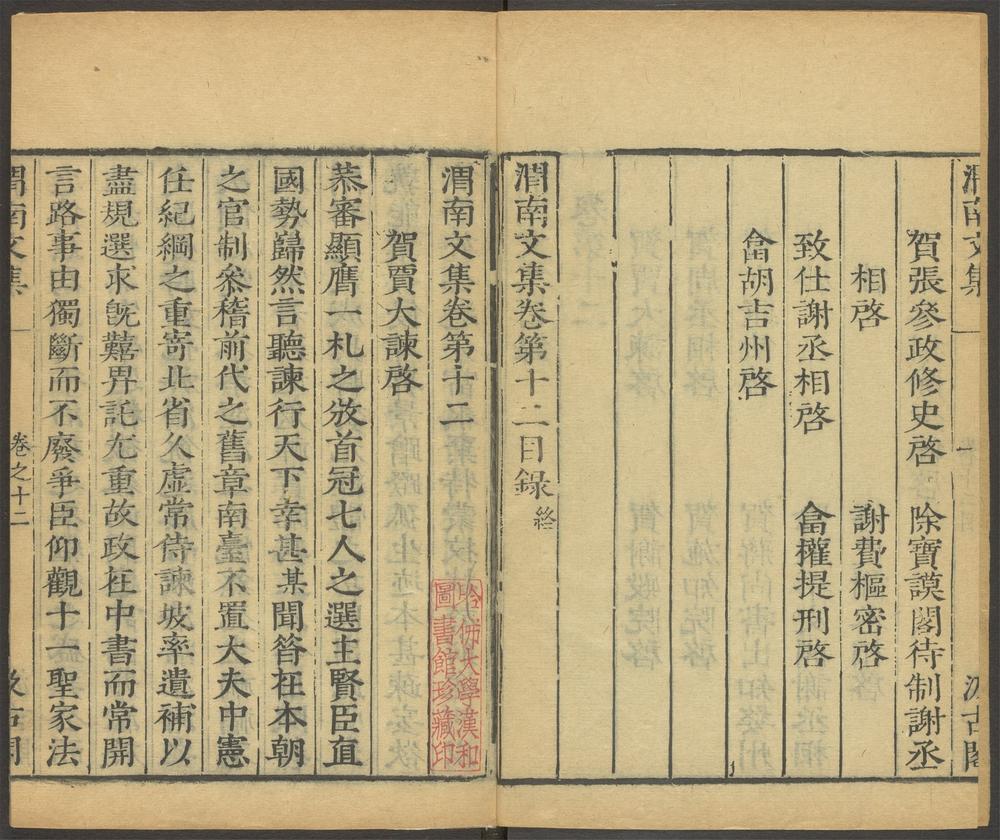 渭南文集
一
汲古閣
賀張參政修史啓　除寶謨閣待制謝丞
相啓　謝費樞密啓
致仕謝丞相啓　畣權提刑啓
畣胡吉州啓
渭南文集卷第十二目錄終
渭南文集卷第十二
哈佛大學漢和
圖書館珍藏印
賀賈大諫啓
恭審顯膺一札之放首冠七人之選主賢臣直
國勢巋然言聽諫行天下幸甚某聞咎在本朝
之官制參稽前代之舊章南臺不置大夫中憲
任紀綱之重寄北省久虛常侍諫坡率遺補以
盡規選求旣囏畀託尤重故政在中書而常開
言路事由獨斷而不廢爭臣仰觀十一聖家法
渭南文集
卷之十二
汲古閣